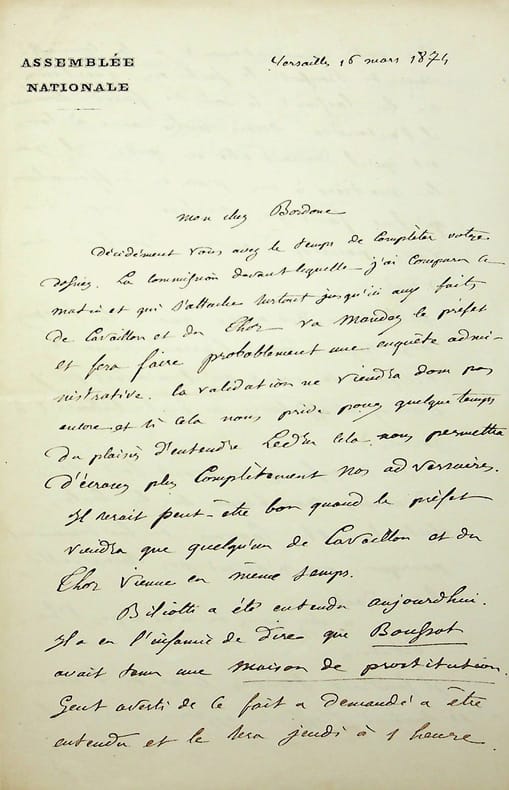 ASSEMBLÉE
NATIONALE
Versailles 16 mars 1874
mon cher Bordone
Décidément vous avez le temps de compléter votre
dossier. La commission devant laquelle j'ai comparu ce
matin et qui s'attache surtout jusqu'ici aux faits
de Cavaillon et du Thor va mander le préfet
et fera faire probablement une enquête admi-
nistrative. la validation ne viendra donc pas
encore et si cela nous prive pour quelque temps
du plaisir d'entendre Ledru cela nous permettra
d'écraser plus complètement nos adversaires.
Il serait peut-être bon quand le préfet
viendra que quelqu'un de Cavaillon et du
Thor vienne en même temps.
Biliotti a été entendu aujourdhui.
Il a eu l'infamie de dire que
avait tenu une maison de prostitution.
Gent averti de ce fait a demandé a être
entendu et le sera jeudi à 1 heure.